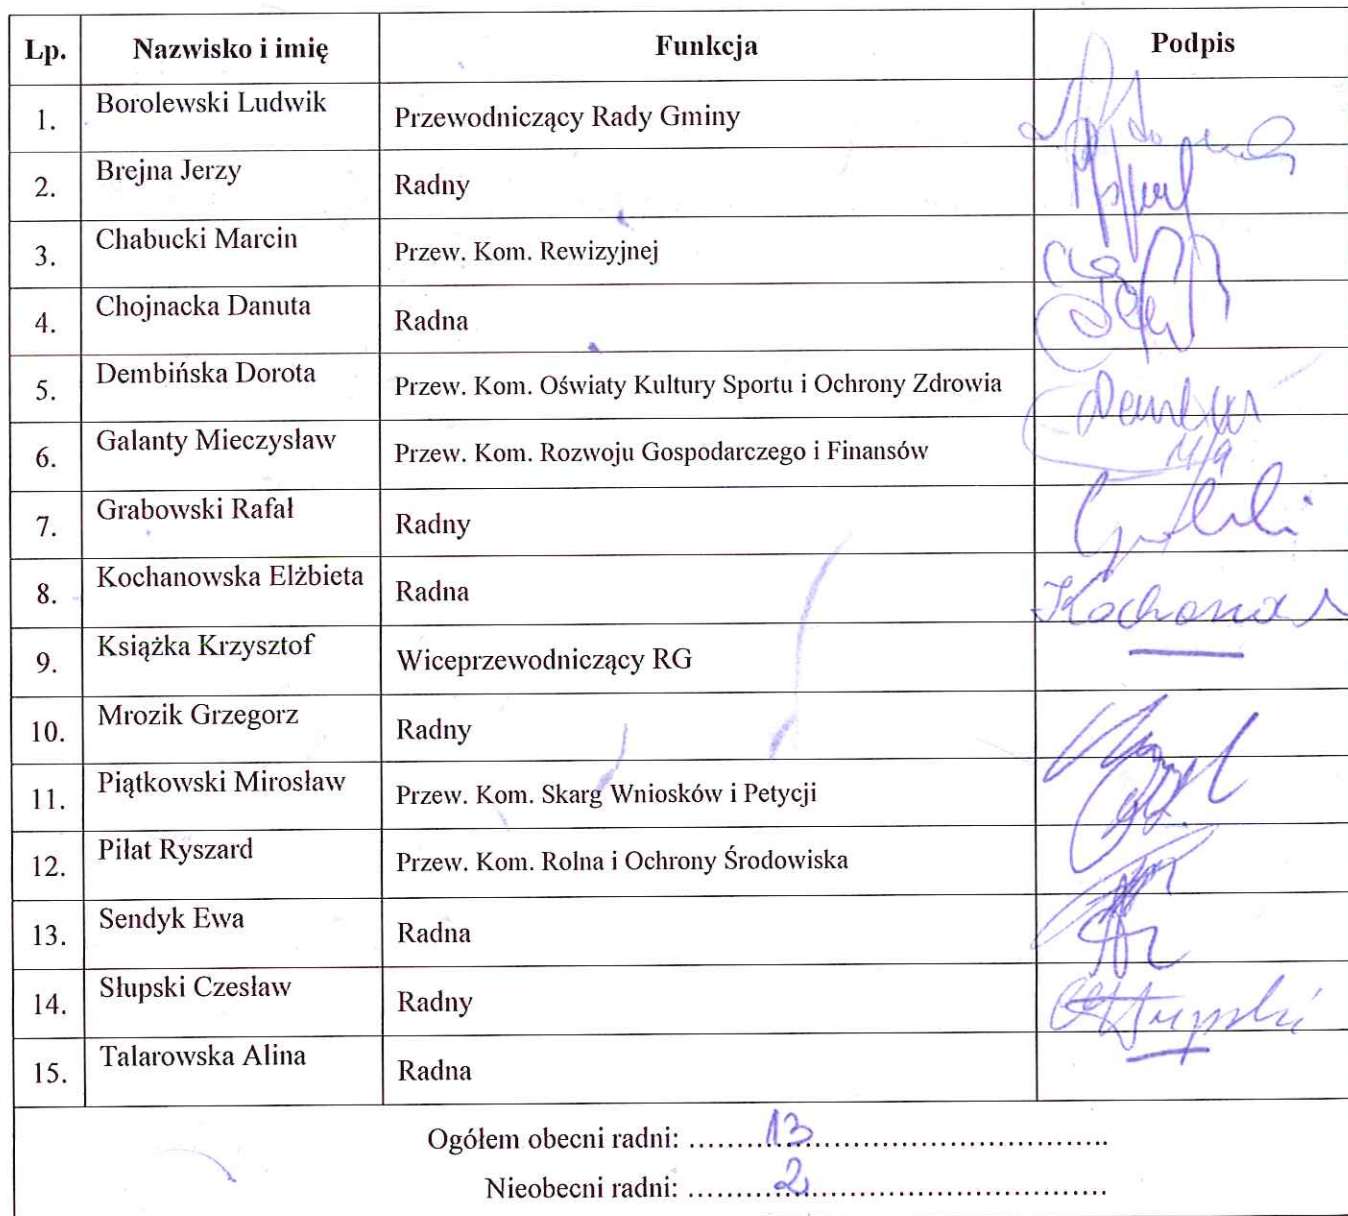 Lp. Nazwisko i imię Funkcja Podpis
1. Borolewski Ludwik Przewodniczący Rady Gminy
2. Brejna Jerzy Radny
3. Chabucki Marcin Przew. Kom. Rewizyjnej
4. Chojnacka Danuta Radna
5. Dembińska Dorota Przew. Kom. Oświaty Kultury Sportu i Ochrony Zdrowia
6. Galanty Mieczysław Przew. Kom. Rozwoju Gospodarczego i Finansów
7. Grabowski Rafał Radny
8. Kochanowska Elżbieta Radna
9. Książka Krzysztof Wiceprzewodniczący RG
10. Mrozik Grzegorz Radny
11. Piątkowski Mirosław Przew. Kom. Skarg Wniosków i Petycji
12. Piłat Ryszard Przew. Kom. Rolna i Ochrony Środowiska
13. Sendyk Ewa Radna
14. Słupski Czesław Radny
15. Talarowska Alina Radna
Ogółem obecni radni: ........13..............................
Nieobecni radni: ........2..............................